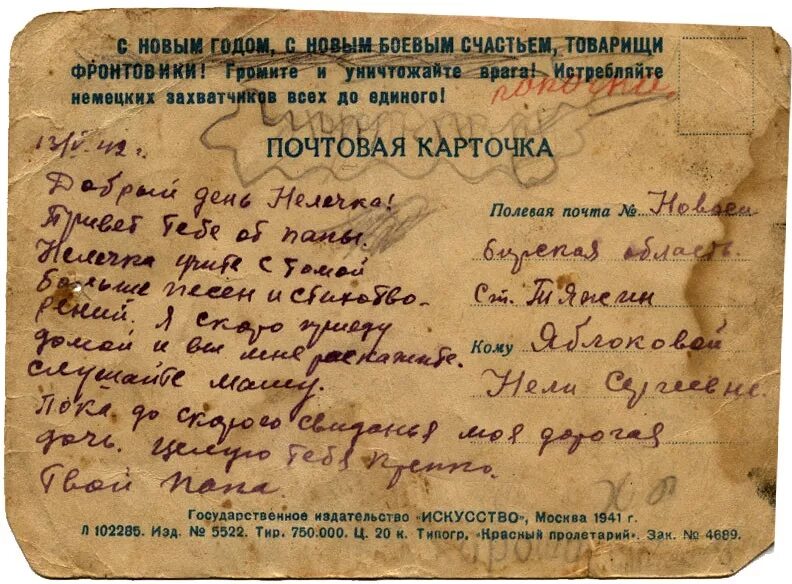 С НОВЫМ ГОДОМ, С НОВЫМ БОЕВЫМ СЧАСТЬЕМ, ТОВАРИЩИ
ФРОНТОВИКИ! Громите и уничтожайте врага! Истребляйте
немецких захватчиков всех до единого!
ПОЧТОВАЯ КАРТОЧКА
13/V.42 г.
Добрый день Нелечка!
Привет тебе от папы.
Нелечка учите с Томой
больше песен и стихотво-
рений. Я скоро приеду
домой и вы мне расскажите.
Слушайте маму.
Пока до скорого свиданья моя дорогая
дочь. Целую тебя крепко.
Твой папа.
Полевая почта № Новоси
бирская область.
Ст. Тяжин
Кому Яблоковой
Нели Сергеевне.
Государственное издательство «ИСКУССТВО», Москва 1941 г.
Л 102285. Изд. № 5522. Тир. 750.000. Ц. 20 к. Типогр. «Красный пролетарий». Зак. № 4699.